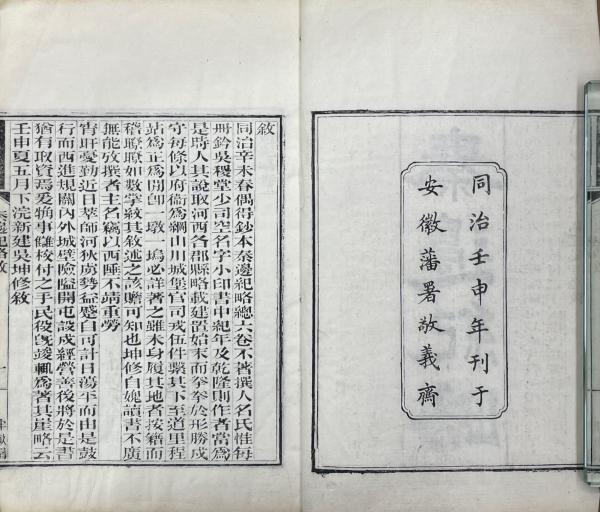 同治壬申年刊于
安徽藩署敬義齋
敘
同治辛未春偶得鈔本秦邊紀略總六卷不著撰人名氏惟每
冊鈐吳稷堂少司空名字小印書中紀年及乾隆則作者當為
是時人其說取河西各郡縣略載建置始末而拳拳於形勝戍
守每條以府衛為綱山川城堡官司戎伍件繫其下至道里程
站為正為閒卽一墩一塢必詳著之雖未身履其地者按籍而
稽瞭瞭如數學紋其敘述之該贍可知也坤修自媿讀書不廣
無能攷撰者主名竊以西陲不靖重勞
宵旰憂勤近日萃師河狄虜勢益蹙自可計日蕩平而由是鼓
行而西進規關內外城壁險隘開屯設戍經營善後將於是書
猶有取資焉爰斠事讎校付之手民役旣竣輒為著其崖略云
壬申夏五月下浣新建吳坤修敘
秦邊紀略敘